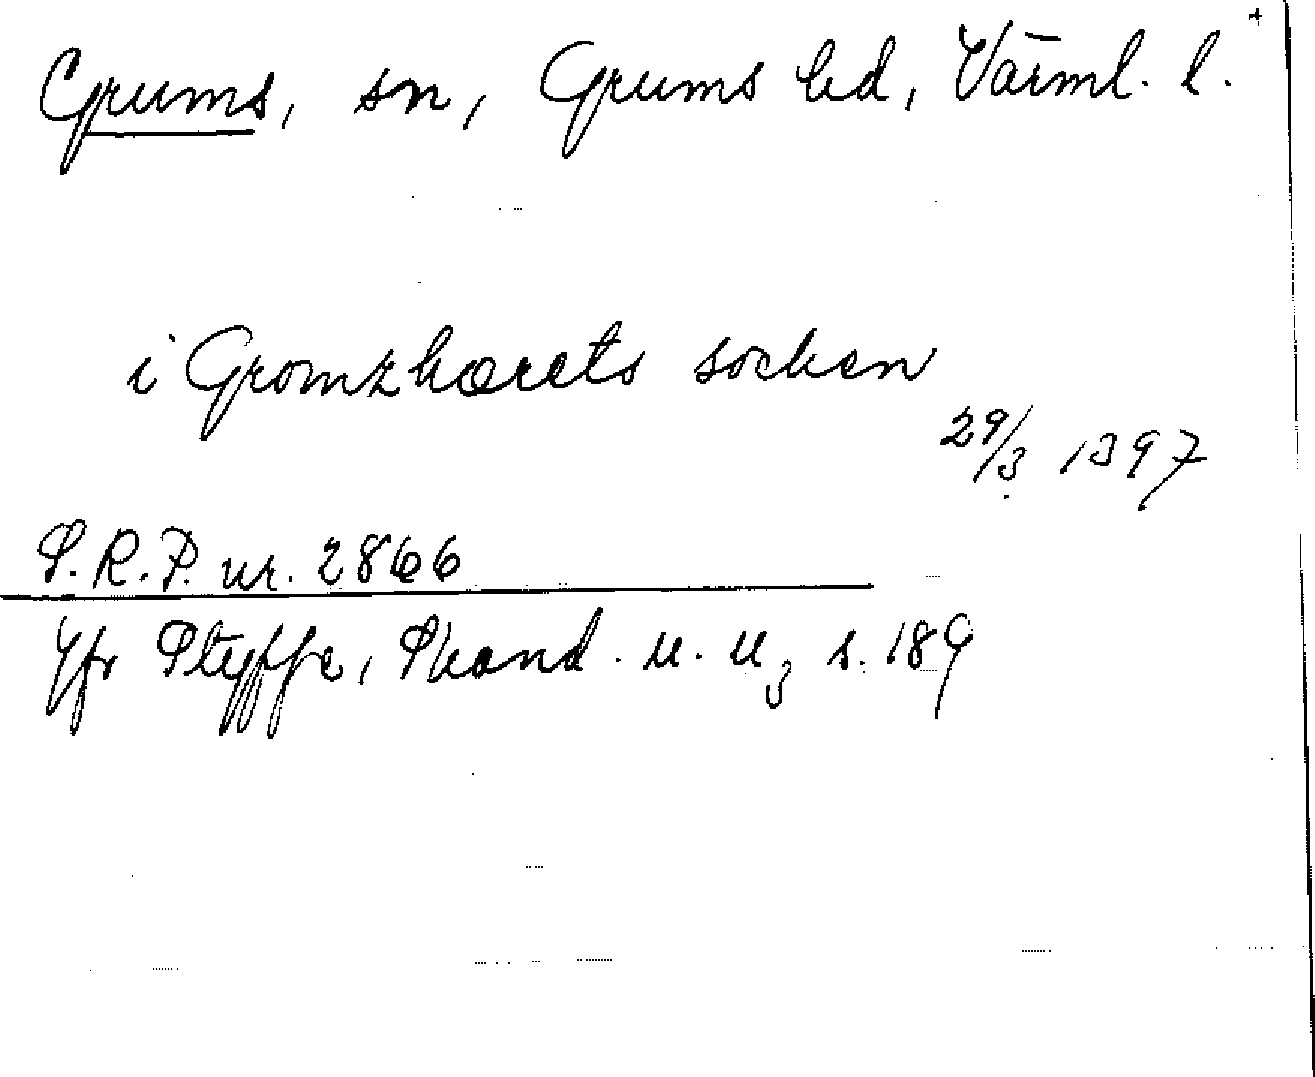 Grums, sn, Grums hd, Värml. l. +
i Gromzhærets socken
29/3 1397
S.R.P. nr. 2866
Jfr Styffe, Skand. u. U3 s. 189